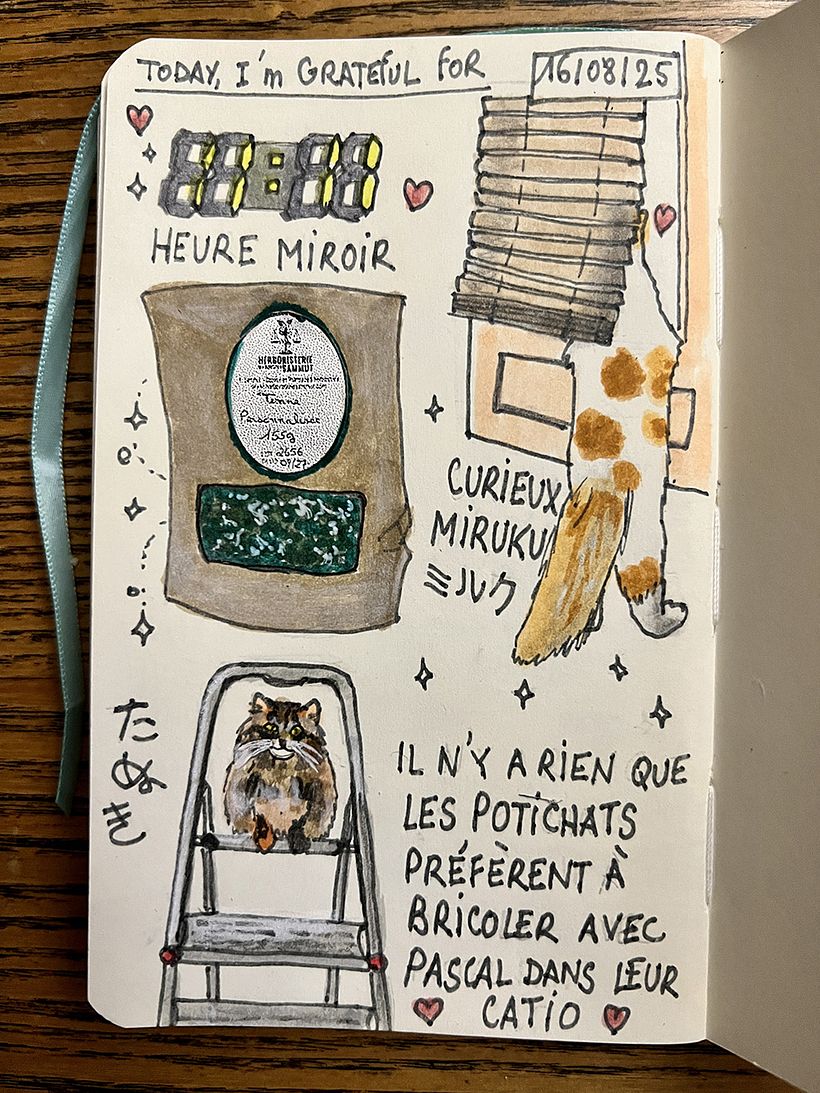 TODAY, I'm GRATEFUL FOR
16/08/25
11:11
HEURE MIROIR
HERBORISTERIE
SAMMUT
Personnalisée
155g
2656
09/27
CURIEUX
MIRUKU
ミルク
たぬき
IL N'Y A RIEN QUE
LES POTICHATS
PRÉFÈRENT À
BRICOLER AVEC
PASCAL DANS LEUR
CATIO